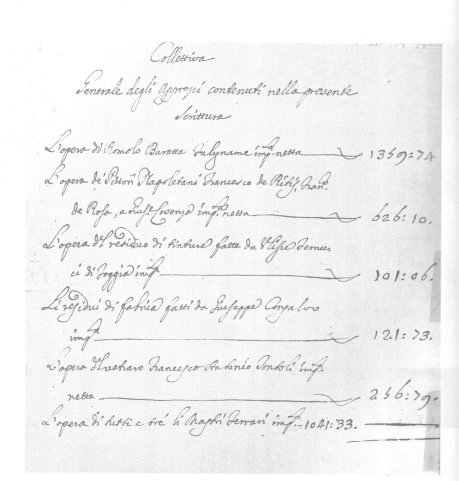 Collettiva
Generale degli Apprezzi contenuti nella presente
Scrittura
L'opera di Romolo Baratta falegname imp.ta netta 1359:74
L'opera de' Pittori Napoletani Francesco de Fran.
de Rosa, e imp. netta 626:10.
L'opera del residuo di tinture fatte da
ci di Foggia imp.ta 101:06.
Li residui di fabrica fatti da Giuseppe Consalvo
imp.ta 121:73.
L'opera del vetraro Francesco Antonio imp.
netta 256:79.
L'opera di tutti e tré li Mastri Ferrari imp. 1041:33.